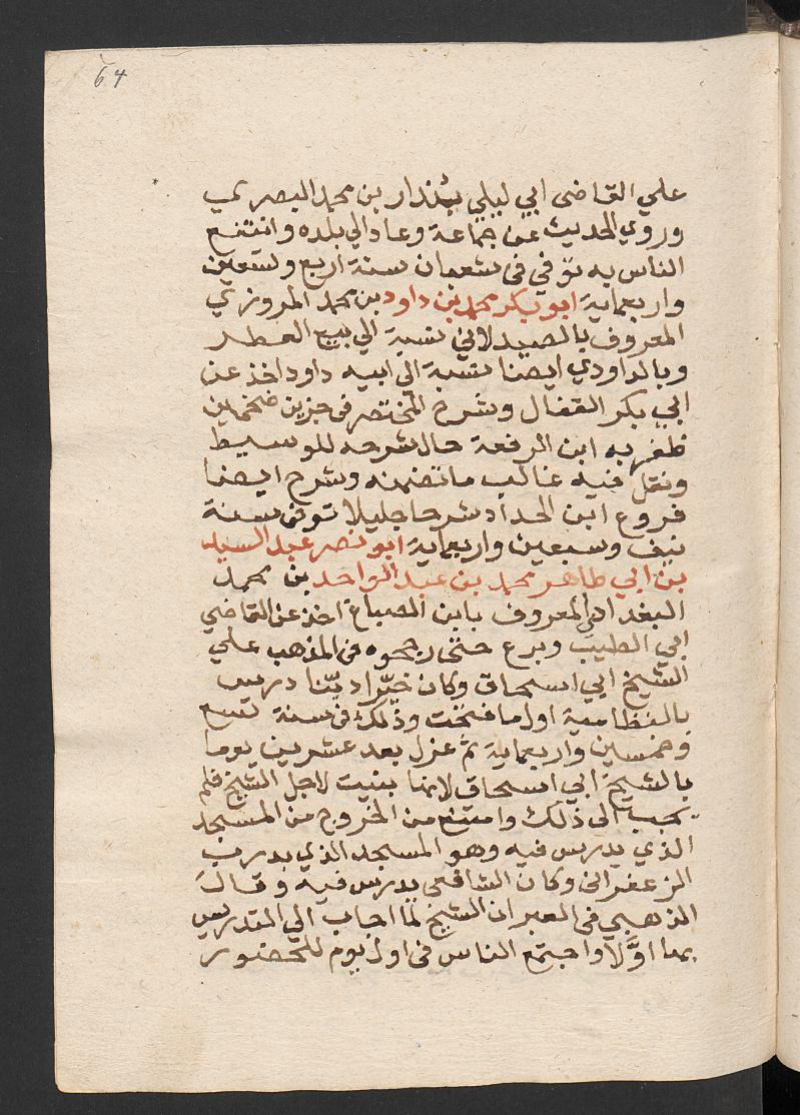 64
علي القاضى ابي ليلي بُندار بن محمد البصري
وروي الحديث عن جماعة وعاد الي بلده وانتفع
الناس به توفي في شعبان سنة اربع وتسعين
واربعماية ابو بكر محمد بن داود بن محمد المروزي
المعروف بالصيدلاني نسبة الي بيع العطر
وبالداودي ايضا نسبة الى ابيه داود اخذ عن
ابي بكر القفال وشرح المختصر في جزين ضخمين
ظفر به ابن الرفعة حال شرحه للوسيط
ونقل فيه غالب ما تضمنه وشرح ايضا
فروع ابن الحداد شرحا جليلا توفى سنة
نيف وسبعين واربعماية ابو نصر عبد السيد
بن ابي طاهر محمد بن عبد الواحد بن محمد
البغدادي المعروف بابن الصباغ اخذ عن القاضي
ابي الطيب وبرع حتى رجحوه في المذهب علي
الشيخ ابي اسحاق وكان خيّرا ديّنا درس
بالنظامية اول ما فتحت وذلك في سنة تسع
وخمسين واربعماية ثم عزل بعد عشرين يوما
بالشيخ ابي اسحاق لانها بنيت لاجل الشيخ فلم
يجب الى ذلك وامتنع من الخروج من المسجد
الذي يدرس فيه وهو المسجد الذي بدرب
الزعفرانى وكان الشافعى يدرس فيه وقال
الذهبي في العبر ان الشيخ لما اجاب الي التدريس
بها اوّلا واجتمع الناس في اول يوم للحضور